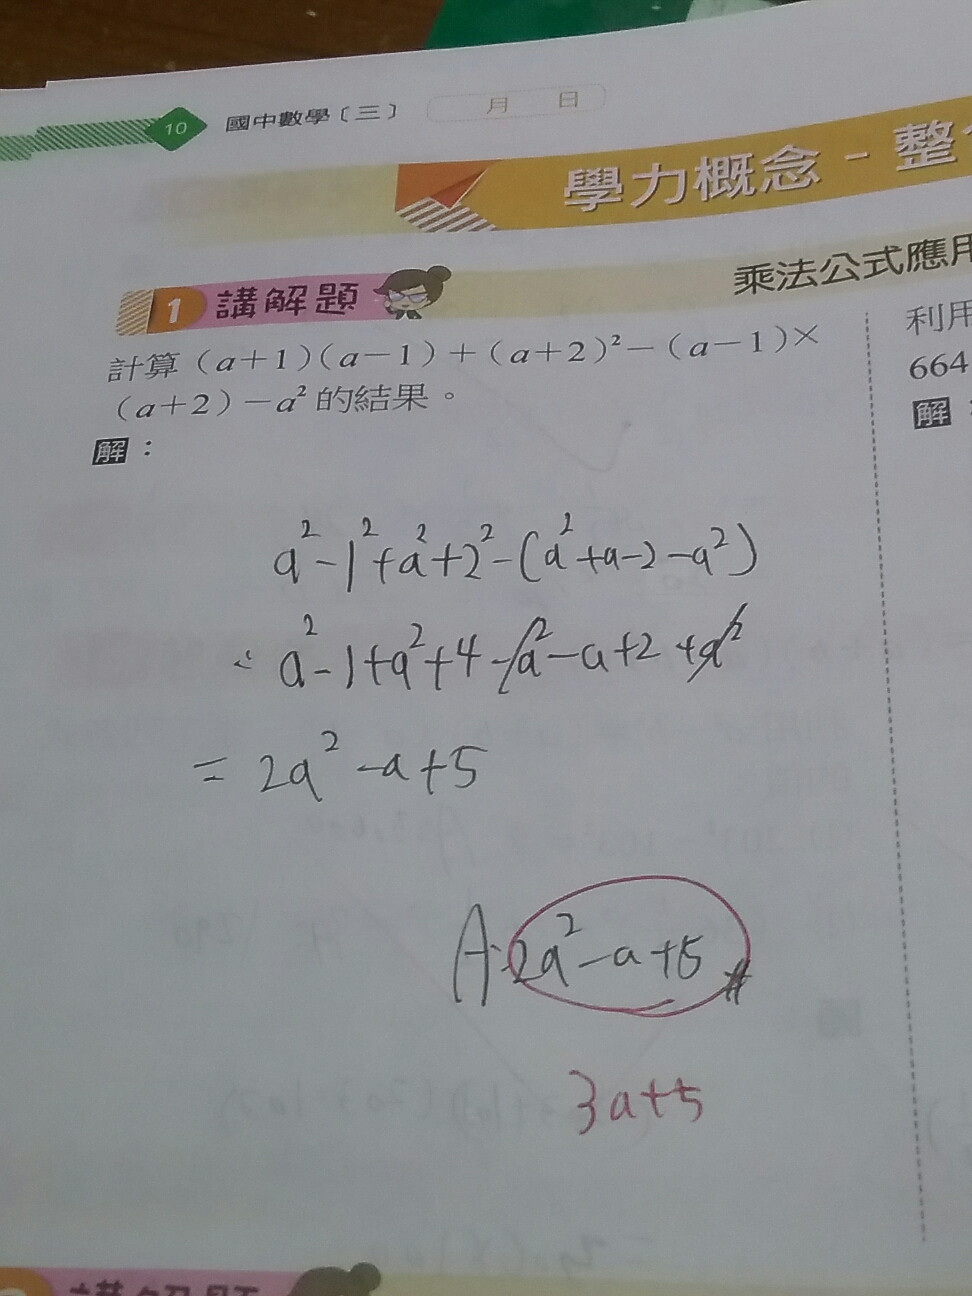 10 國中數學〔三〕 月 日
學力概念-整
1 講解題
乘法公式應用
計算（a+1）（a-1）+（a+2）²-（a-1）×
（a+2）-a² 的結果。
解：
a²-1²+a²+2²-(a²+a-2-a²)
a²-1+a²+4-a²-a+2+a²
= 2a²-a+5
A: 2a²-a+5 #
3a+5
利用
664
解：
講解題